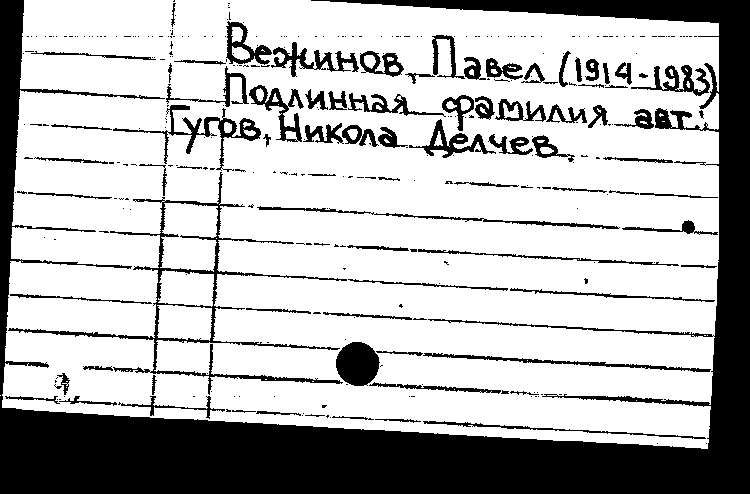 Вежинов, Павел (1914-1983)
Подлинная фамилия авт.:
Гугов, Никола Делчев.